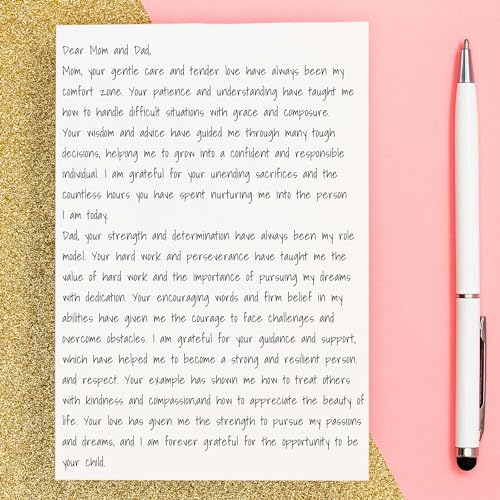 Dear Mom and Dad,
Mom, your gentle care and tender love have always been my
comfort zone. Your patience and understanding have taught me
how to handle difficult situations with grace and composure.
Your wisdom and advice have guided me through many tough
decisions, helping me to grow into a confident and responsible
individual. I am grateful for your unending sacrifices and the
countless hours you have spent nurturing me into the person
I am today.
Dad, your strength and determination have always been my role
model. Your hard work and perseverance have taught me the
value of hard work and the importance of pursuing my dreams
with dedication. Your encouraging words and firm belief in my
abilities have given me the courage to face challenges and
overcome obstacles. I am grateful for your guidance and support,
which have helped me to become a strong and resilient person.
and respect. Your example has shown me how to treat others
with kindness and compassion,and how to appreciate the beauty of
life. Your love has given me the strength to pursue my passions
and dreams, and I am forever grateful for the opportunity to be
your child.